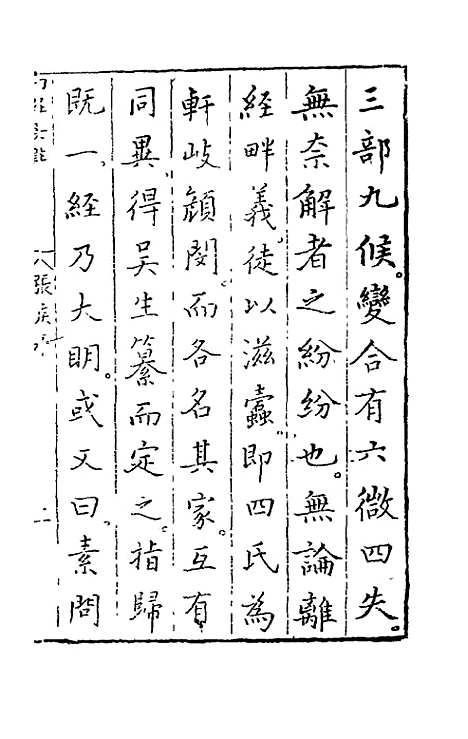 三部九候。變合有六微四失。
無柰解者之紛紛也。無論離
經畔義。徒以滋蠹。即四氏為
軒岐顏閔。而各名其家。互有
同異。得吴生纂而定之。指歸
既一。經乃大明。或又曰。素問